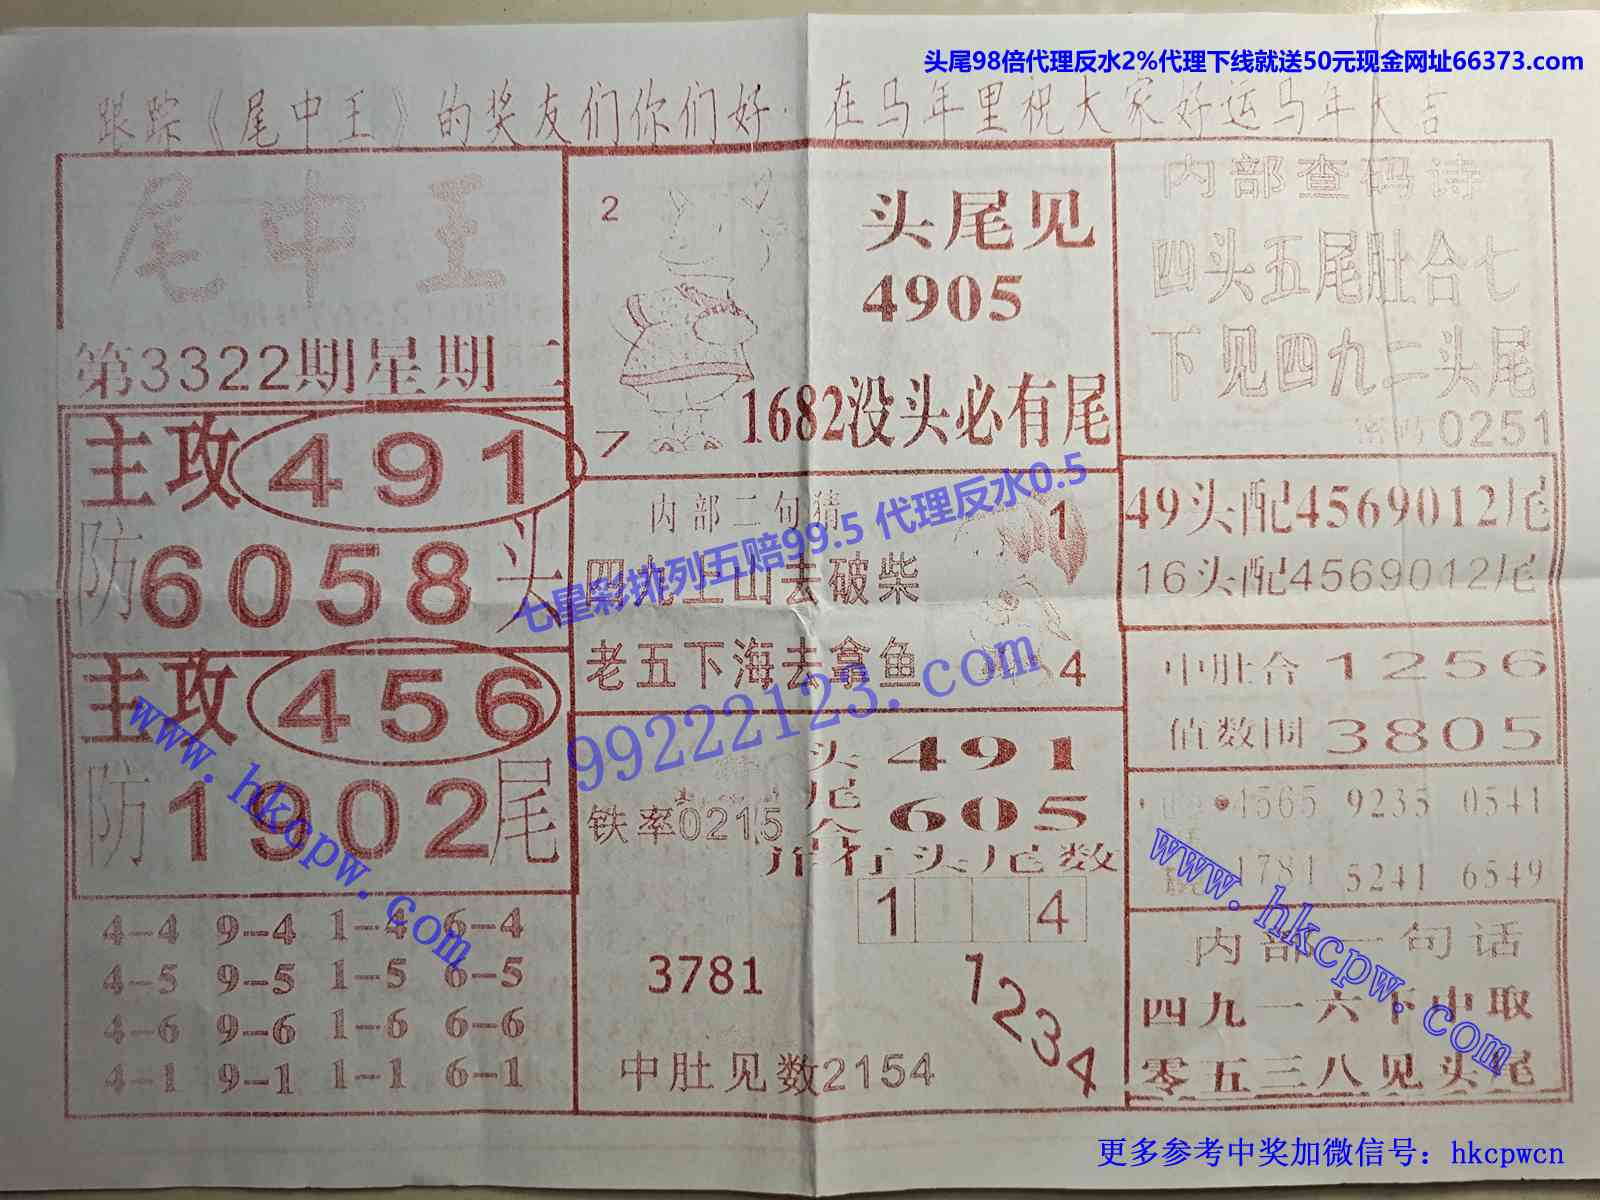 头尾98倍代理反水2%代理下线就送50元现金网址66373.com
跟踪《尾中王》的奖友们你们好 在马年里祝大家好运马年大吉
尾中王
第3322期星期二
主攻 491
防6058头
主攻 456
防1902尾
4-4 9-4 1-4 6-4
4-5 9-5 1-5 6-5
4-6 9-6 1-6 6-6
4-1 9-1 1-1 6-1
2
头尾见
4905
1682没头必有尾
7
内部二句猜
1
四九上山去破柴
老五下海去拿鱼
4
头尾合
491
605
铁率0215
开行头尾数
1 4
3781
1234
中肚见数2154
内部查码诗
四头五尾肚合七
下见四九二头尾
0251
49头配4569012尾
16头配4569012尾
中肚合1256
值数围3805
4565 9235 0541
1781 5241 6549
内部一句话
四九一六下中取
零五三八见头尾
七星彩排列五赔99.5 代理反水0.5
99222123.com
www.hkcpw.com
www.hkcpw.com
更多参考中奖加微信号：hkcpwcn